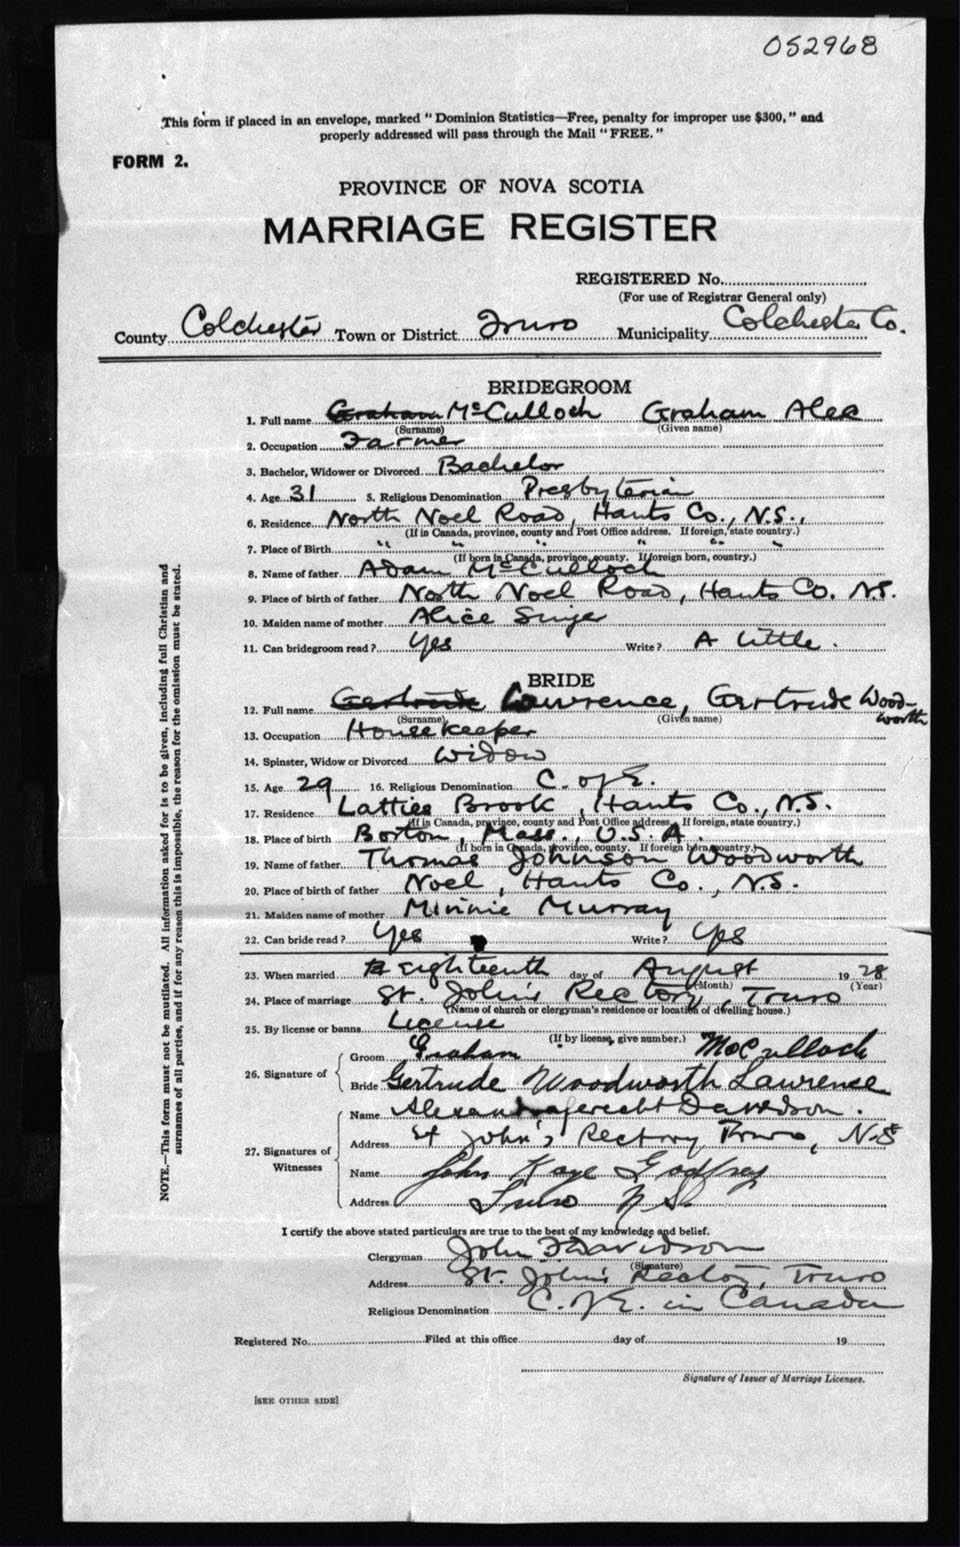 052968
This form if placed in an envelope, marked "Dominion Statistics—Free, penalty for improper use $300," and
properly addressed will pass through the Mail "FREE."
FORM 2.
PROVINCE OF NOVA SCOTIA
MARRIAGE REGISTER
REGISTERED No.
(For use of Registrar General only)
County Colchester Town or District Truro Municipality Colchester Co.
BRIDEGROOM
1. Full name Graham McCulloch Graham Alex
(Surname) (Given name)
2. Occupation Farmer
3. Bachelor, Widower or Divorced Bachelor
4. Age 31 5. Religious Denomination Presbyterian
6. Residence North Noel Road, Hants Co., N.S.,
(If in Canada, province, county and Post Office address. If foreign, state country.)
7. Place of Birth " " " " "
(If born in Canada, province, county. If foreign born, country.)
8. Name of father Adam McCulloch
9. Place of birth of father North Noel Road, Hants Co. N.S.
10. Maiden name of mother Alice Singer
11. Can bridegroom read? Yes Write? A little.
BRIDE
12. Full name Gertrude Lawrence, Gertrude Wood-
worth
(Surname) (Given name)
13. Occupation Housekeeper
14. Spinster, Widow or Divorced Widow
15. Age 29 16. Religious Denomination C. of E.
17. Residence Latties Brook, Hants Co., N.S.
(If in Canada, province, county and Post Office address. If foreign, state country.)
18. Place of birth Boston, Mass., U.S.A.
(If born in Canada, province, county. If foreign born, country.)
19. Name of father Thomas Johnson Woodworth
20. Place of birth of father Noel, Hants Co., N.S.
21. Maiden name of mother Minnie Murray
22. Can bride read? Yes Write? Yes
23. When married Eighteenth day of August 1928
(Month) (Year)
24. Place of marriage St. John's Rectory, Truro
(Name of church or clergyman's residence or location of dwelling house.)
25. By license or banns License
(If by license, give number.)
26. Signature of
Groom Graham McCulloch
Bride Gertrude Woodworth Lawrence
27. Signatures of Witnesses
Name Davidson.
Address St John's Rectory Truro, N.S
Name John Kaye Godfrey
Address Truro N.S.
I certify the above stated particulars are true to the best of my knowledge and belief.
Clergyman John F Davidson
(Signature)
Address St. John's Rectory, Truro
Religious Denomination C. of E. in Canada
Registered No. Filed at this office day of 19
Signature of Issuer of Marriage Licenses.
[SEE OTHER SIDE]
NOTE.—This form must not be mutilated. All information asked for is to be given, including full Christian and
surnames of all parties, and if for any reason this is impossible, the reason for the omission must be stated.